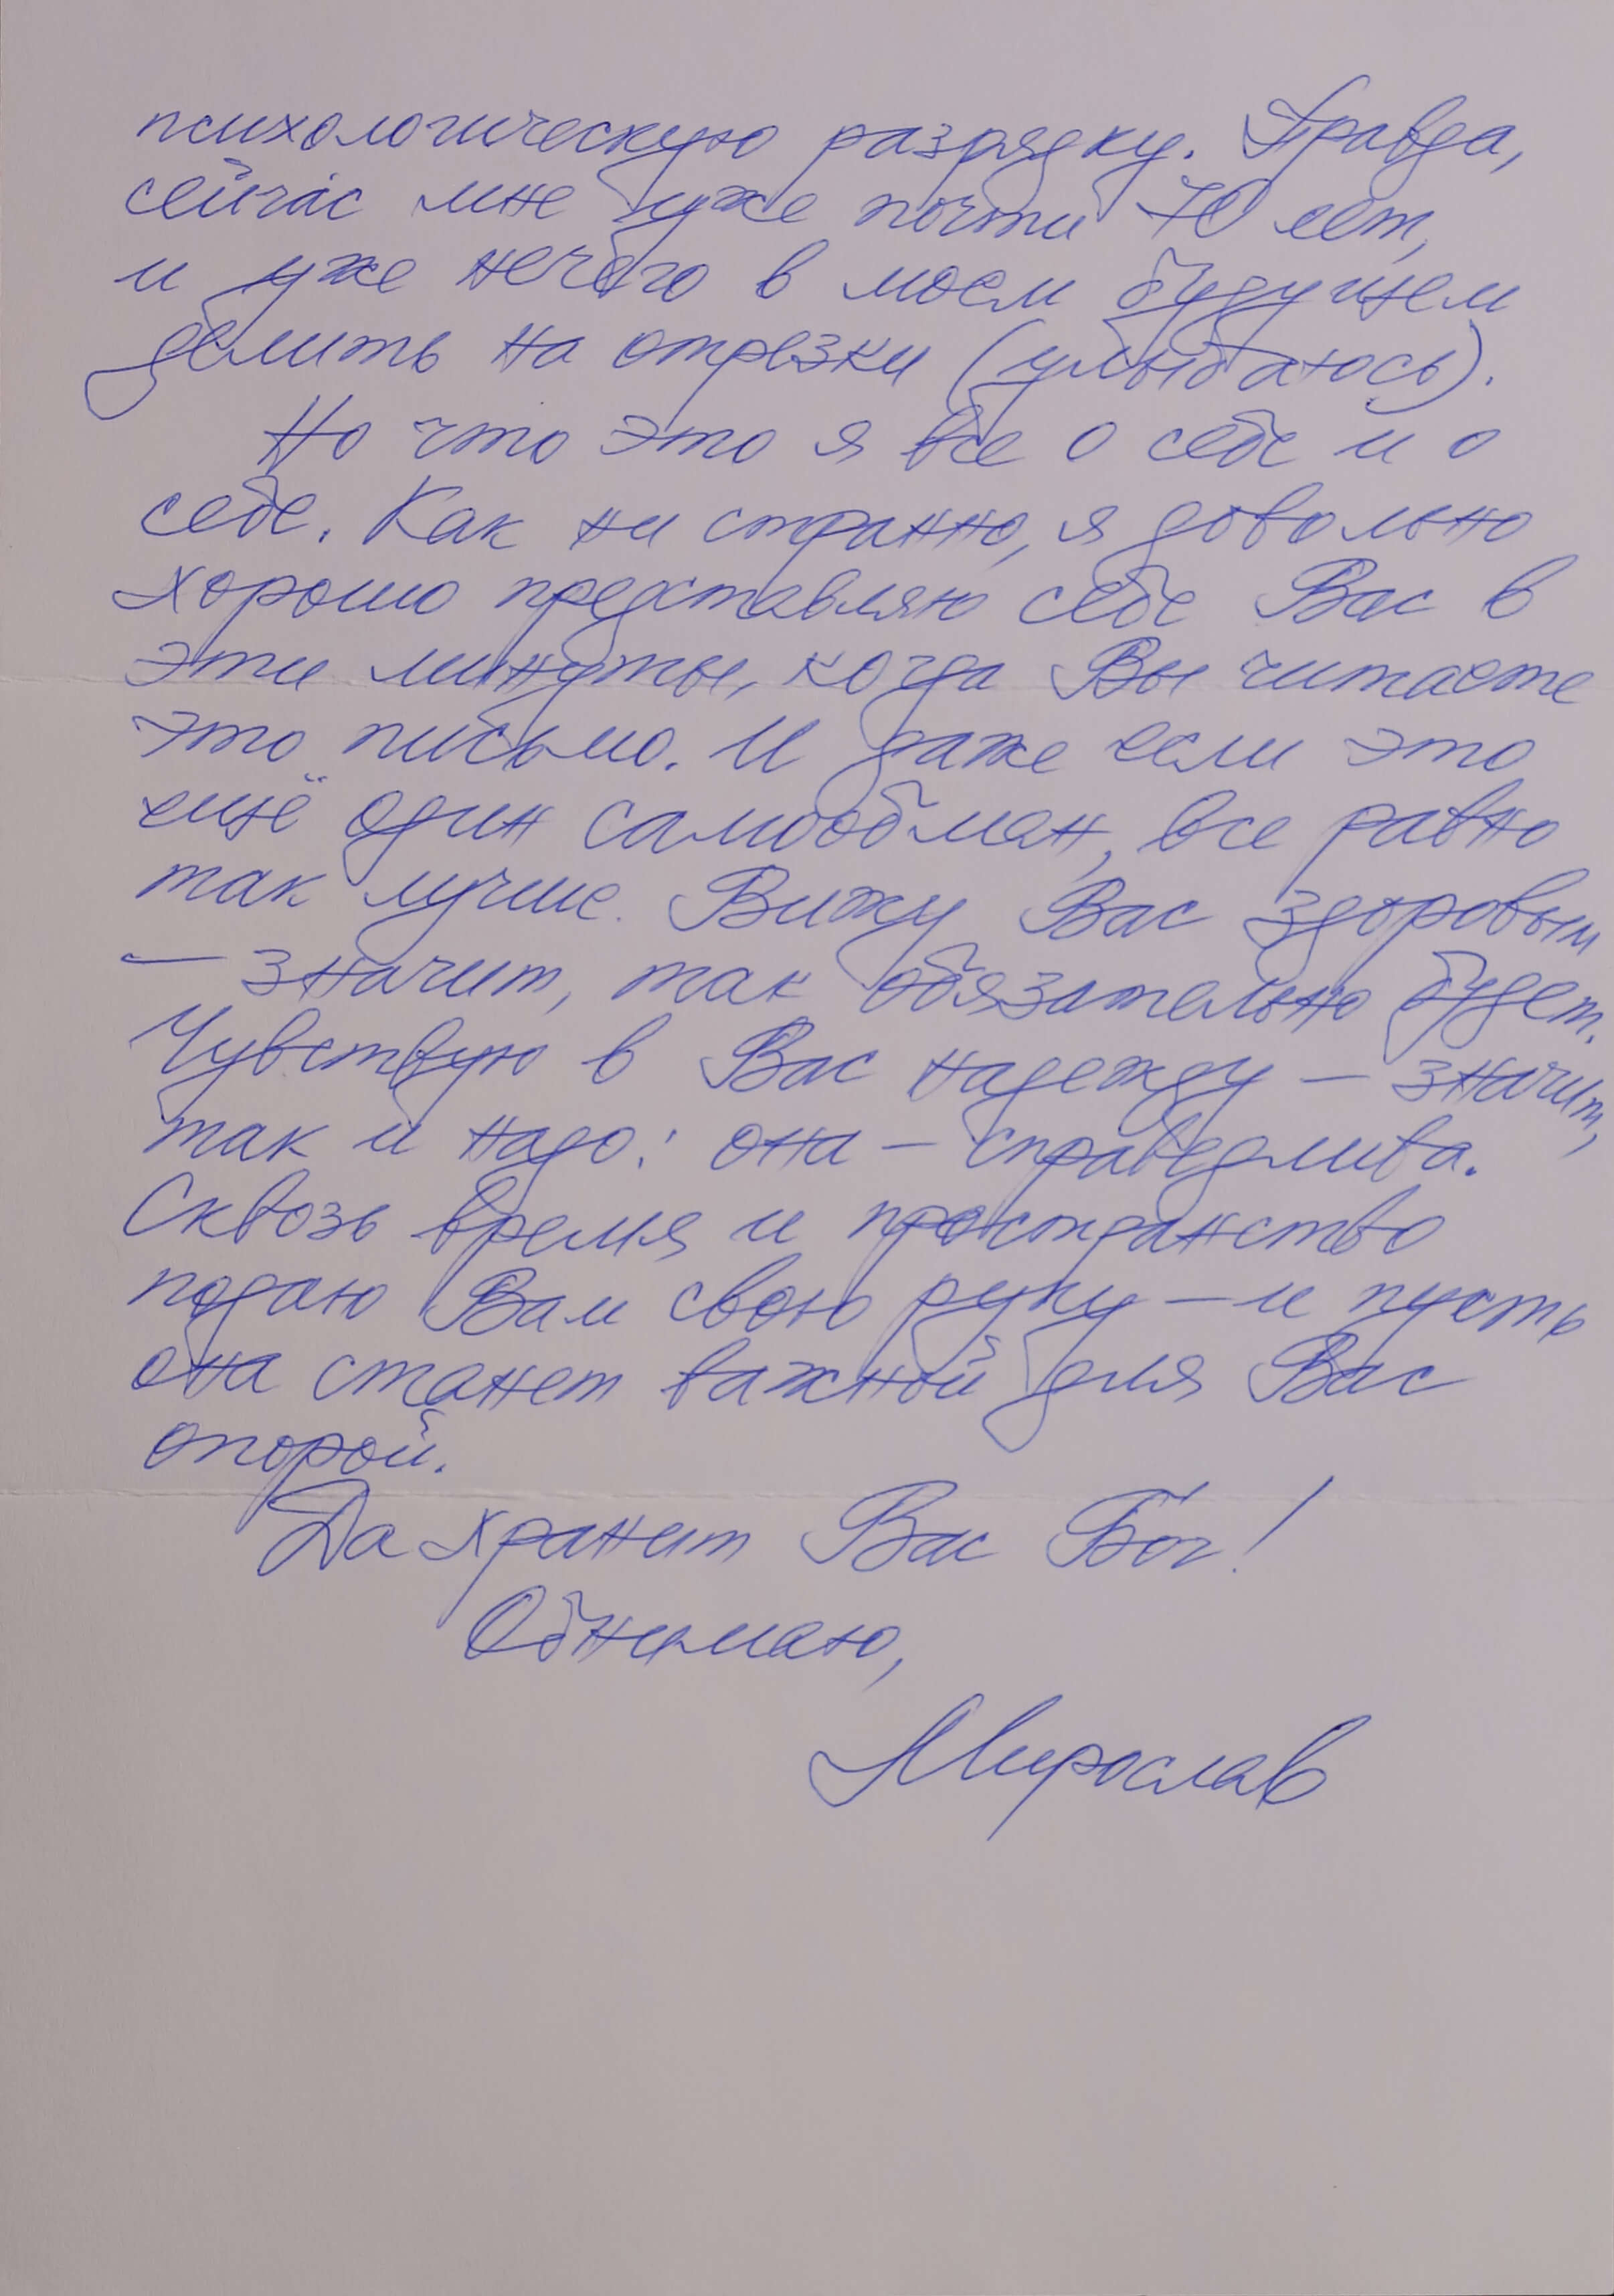 психологическую разрядку. Правда,
сейчас мне уже почти 70 лет,
и уже нечего в моем будущем
делить на отрезки (улыбаюсь).
Но что это я все о себе и о
себе. Как ни странно, я довольно
хорошо представляю себе Вас в
эти минуты, когда Вы читаете
это письмо. И даже если это
ещё один самообман, все равно
так лучше. Вижу Вас здоровым
— значит, так обязательно будет.
Чувствую в Вас надежду — значит,
так и надо: она — справедлива.
Сквозь время и пространство
подаю Вам свою руку — и пусть
она станет важной для Вас
опорой.
Да хранит Вас Бог!
Обнимаю,
Мирослав